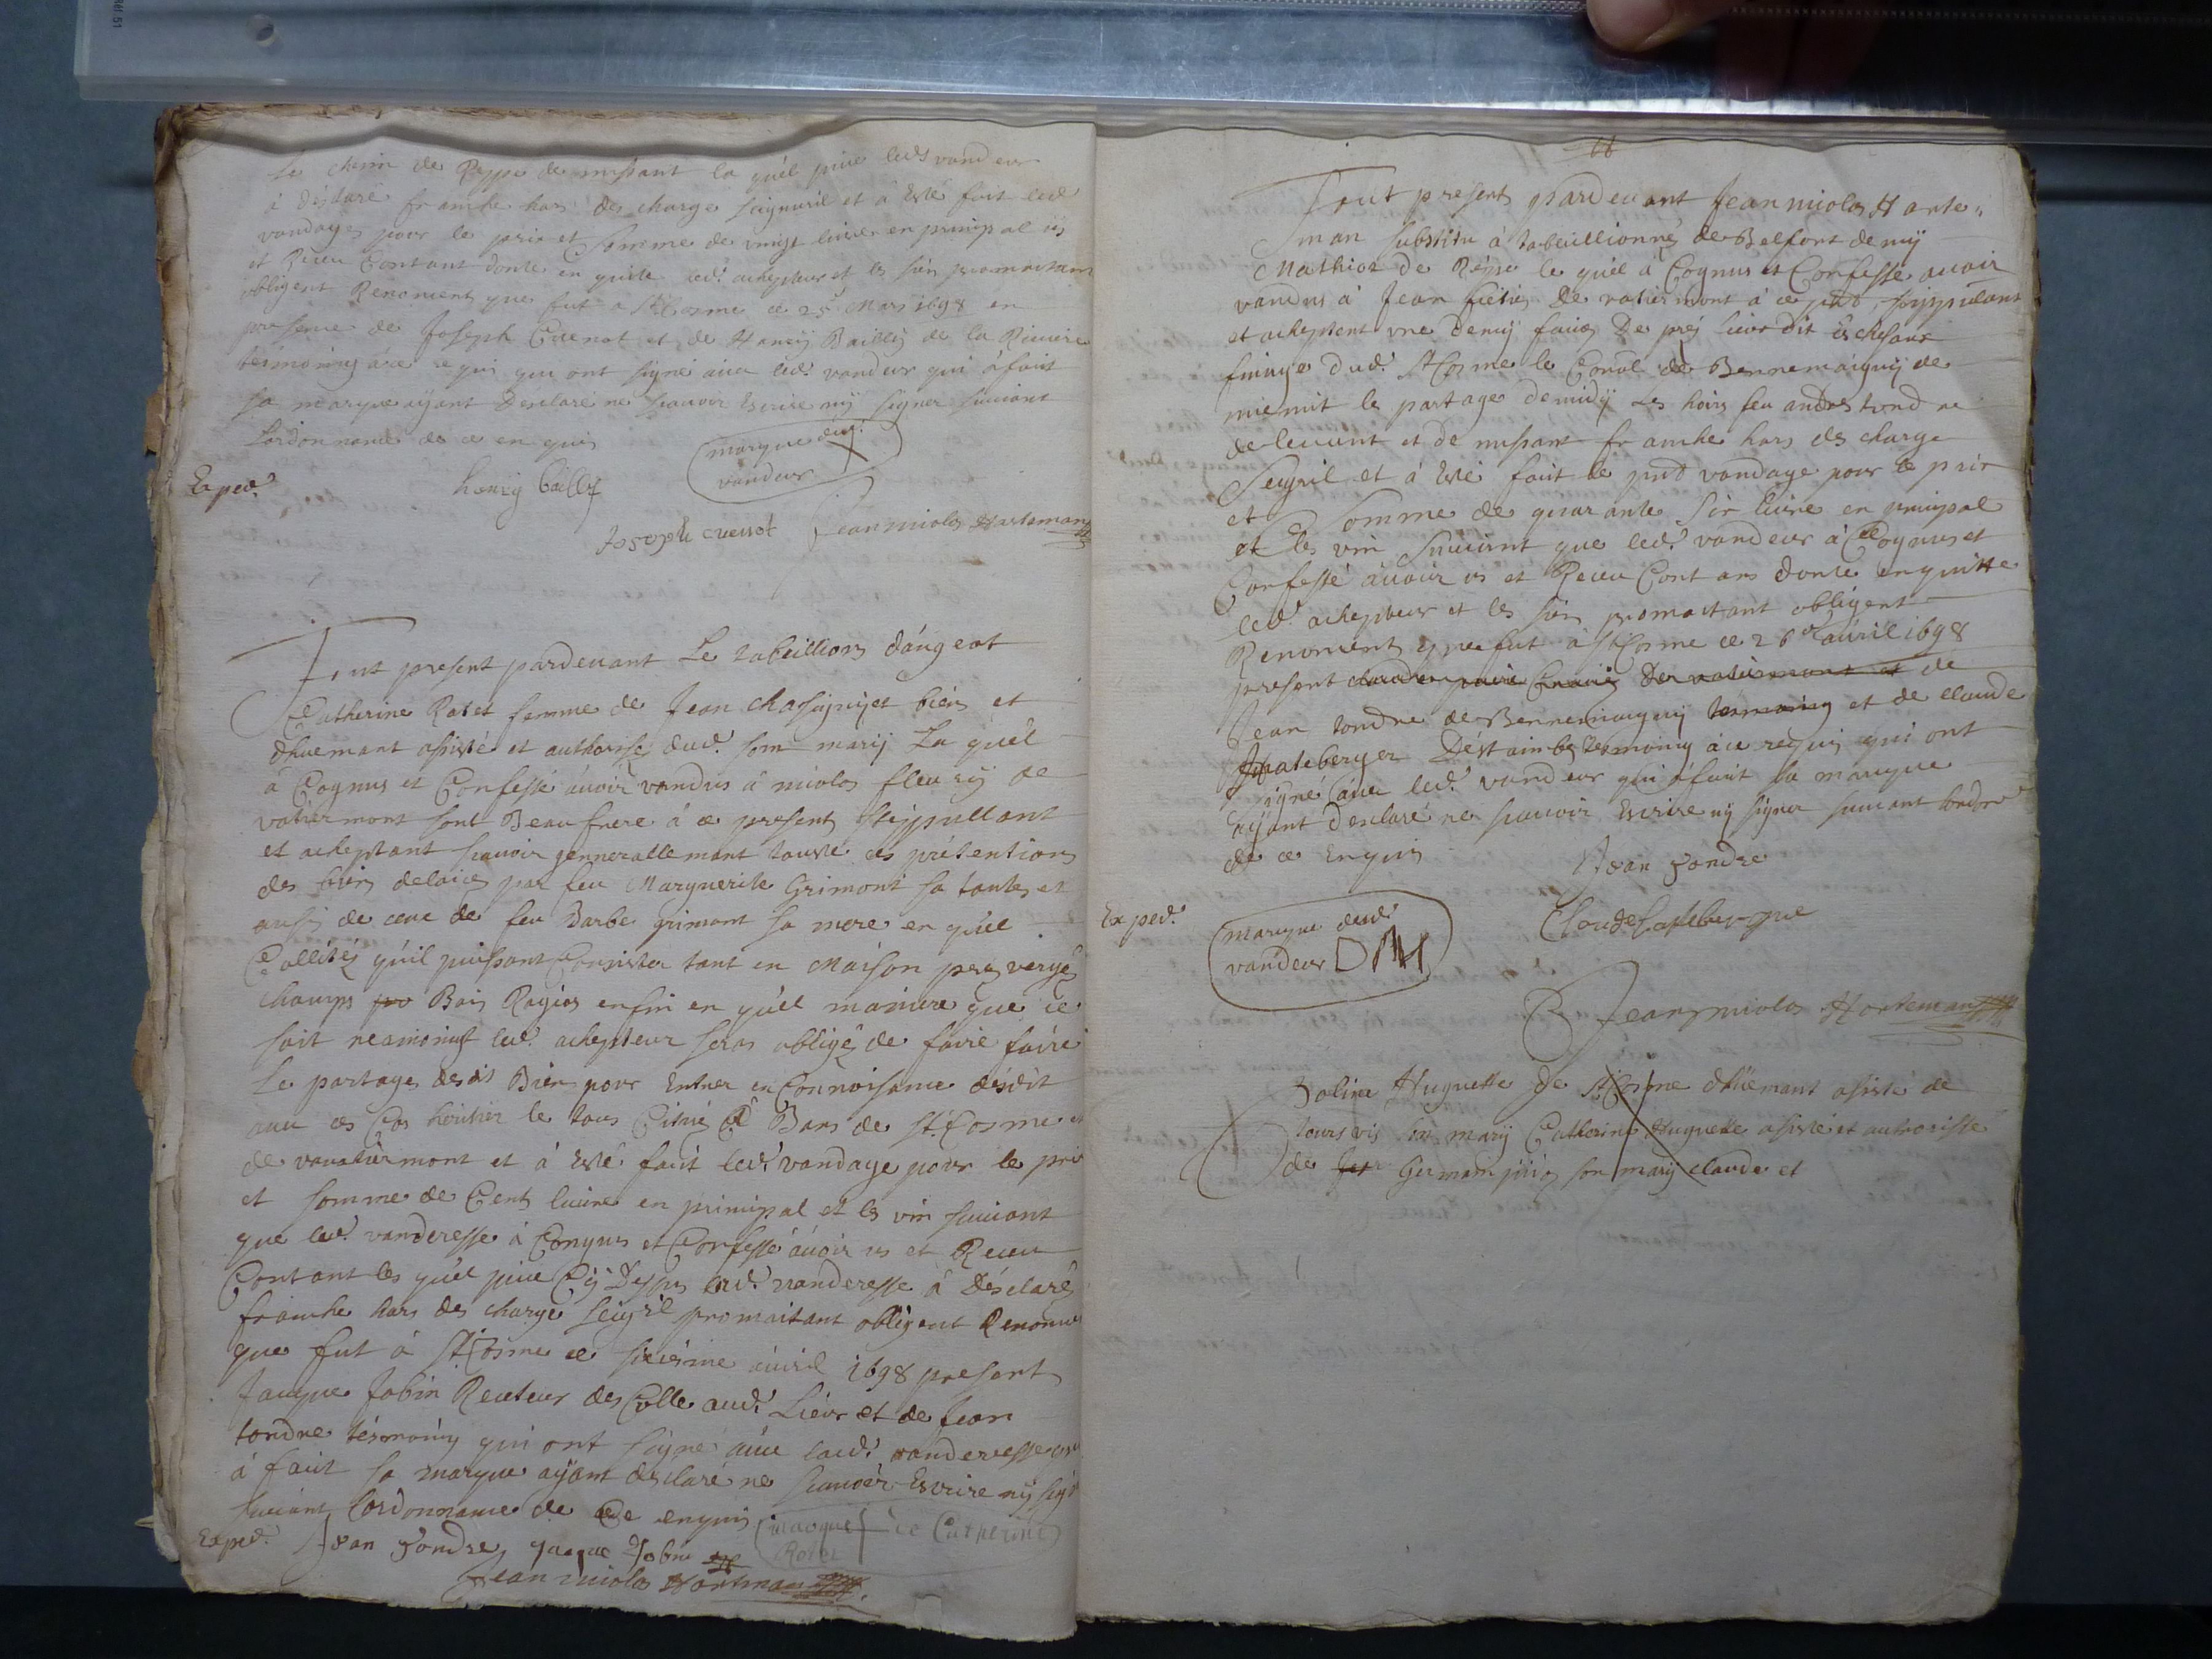 Le chemin de Reppe de nussant la quél piece leds vandeur
à déslaré franche hors des charge seignuril et à Esté fait led
vandages pour le prix et somme de vingt livre en principal üs
et Receu Contant donte en quite led. achepteur et les sien promaitant
obligent Renoncent que fut a St Cosme ce 25e Mars 1698 en
presence de Joseph Cuenot et de Hanrÿ Baillÿ de la Riviere
tésmoing àce requi qui ont signé avec led. vandeur qui à fait
sa marque aÿant Desclaré ne scauoir Escrire nÿ signer suivant
Lordonnance de ce enquis
marque dud.
vandeur
Exped.
henrÿ baillÿ
Joseph cuenot Jean nicolas Hartemann
Fut present pardeuant Le tabeillions dángeot
Catherine Rotet femme de Jean Chasignÿet bien et
dhuemant asisté et authorisé dud. son marÿ La quél
à Cognus et Confessé áuoir vandus à nicolas fleurÿ de
vatiermont sont Beaufrere à ce present stippullant
et acheptant scauoir gennerallemant touste ces prétentions
des bien delaicé par feu Marguerite Grimont sa tante et
ausÿ de ceux de feu Barbe grimont sa mere en quél
Callités quil puissant Consister tant en Maison prez vergés
champs Bois Ragies enfin en quél mainiere que ce
soit neamoins led. achepteur seras obligé de faire faire
Le partage desdit Bien pour Entrer en Connoisance désdit
auec ces Cos héritier le tous Citué Bans de St. Cosme et
de vauatiermont et à Esté fait led. vandage pour le prix
et somme de Cents livre en principal et les vin suivant
que lad. vanderesse à Congnus et Confessé áuoir us et Receu
Contant les quél piece Cÿ Dessus lad. vanderesse à Déslaré
franche hors des charge seigril promaitant obligent Renonce
que fut à St Cosme ce sixiesme áuril 1698 present
Jacque Jobin Recteur des Colle aud. Lieux et de Jean
tondre tésmoing qui ont signé áuec lad. vanderesse qui
à fait sa marque aÿant desclaré ne scauoir Escrire nÿ sign
suivant Lordonnance de Ce enquis marque de Catherine
Rotet
Exped. Jean tondre Jacque Jobin
Jean nicolas Hartmann
Fut present pardeuant Jean nicolas Harte
man substitu à tabeillionné de Belfort demÿ
Mathiot de Réppe le quél à Cognus et Confessé auoir
vandus à Jean de vatiermont à ce pnt stippulant
et acheptent vne demÿ faux De prez lieux dit
finage dud. St Cosme le Conol de Bennemaignÿ de
mienuit le partage demidÿ Les hoirs feu andres tond re
de leuant et de nussant franche hors des charge
Seigril et à Esté fait le pnt vandage pour le prix
et Somme de quarante Six livre en principal
et les vin suivant que led. vandeur à Cognus et
Confessé áuoir us et Receu Contans donte enquitte
led. achepteur et les sien promaitant obligent
Renoncent que fut à St Cosme ce 26e áuril 1698
present de
Jean tondre de Bennemaignÿ tesmoing et de claude
Déstainbes tesmoing àce requis qui ont
signé áuec led. vandeur qui à fait sa marque
aÿant desclaré ne scauoir Escrire nÿ signer suivant lordce
de ce Enquis
Jean tondre
Exped. marque dud.
vandeur DM
Jean nicolas Hartemann
Huguette De St Cosme dhüemant asisté de
son marÿ Catherine Huguette asisté et autorissé
de Germain son marÿ claude et